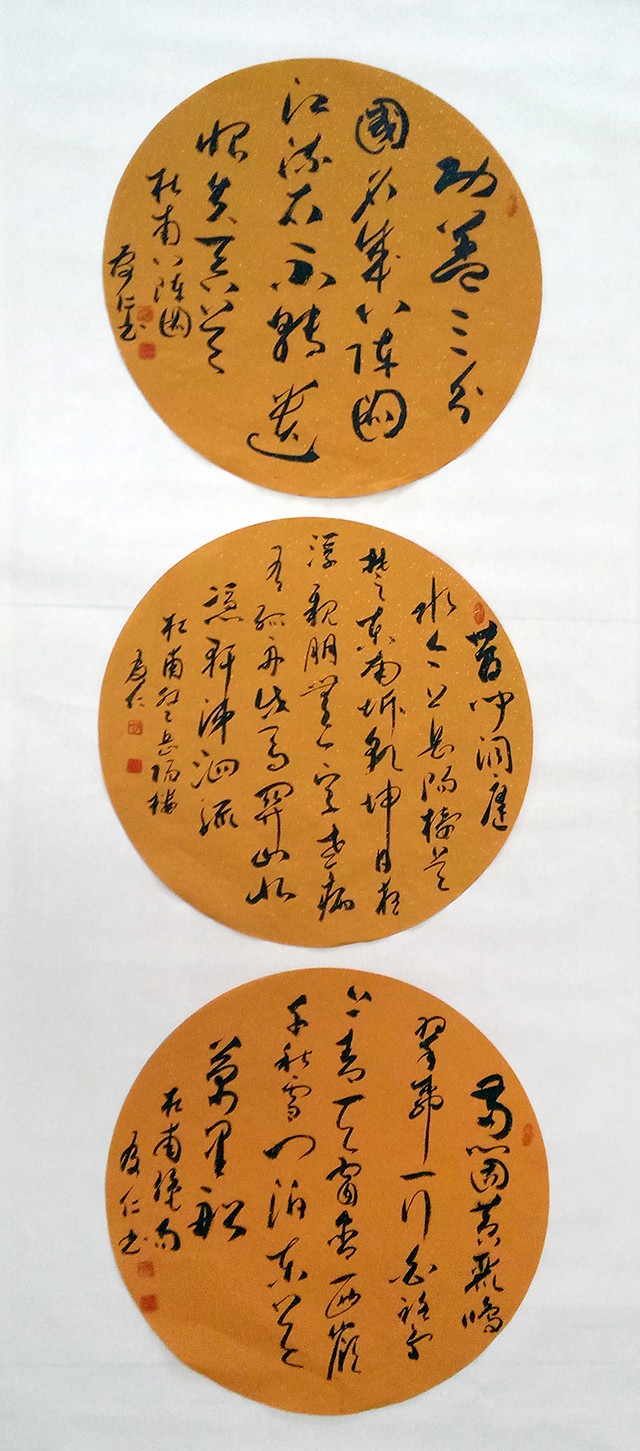 功蓋三分
國名成八陣圖
江流石不轉遺
恨失吞吴
杜甫八陣圖
友仁书
昔聞洞庭
水今上岳陽樓吴
楚東南坼乾坤日夜
浮親朋無一字老病
有孤舟戎馬關山北
憑軒涕泗流
杜甫登岳陽樓
友仁
两個黄鸝鳴
翠柳一行白鷺
上青天窗含西嶺
千秋雪門泊東吴
萬里船
杜甫絕句
友仁书